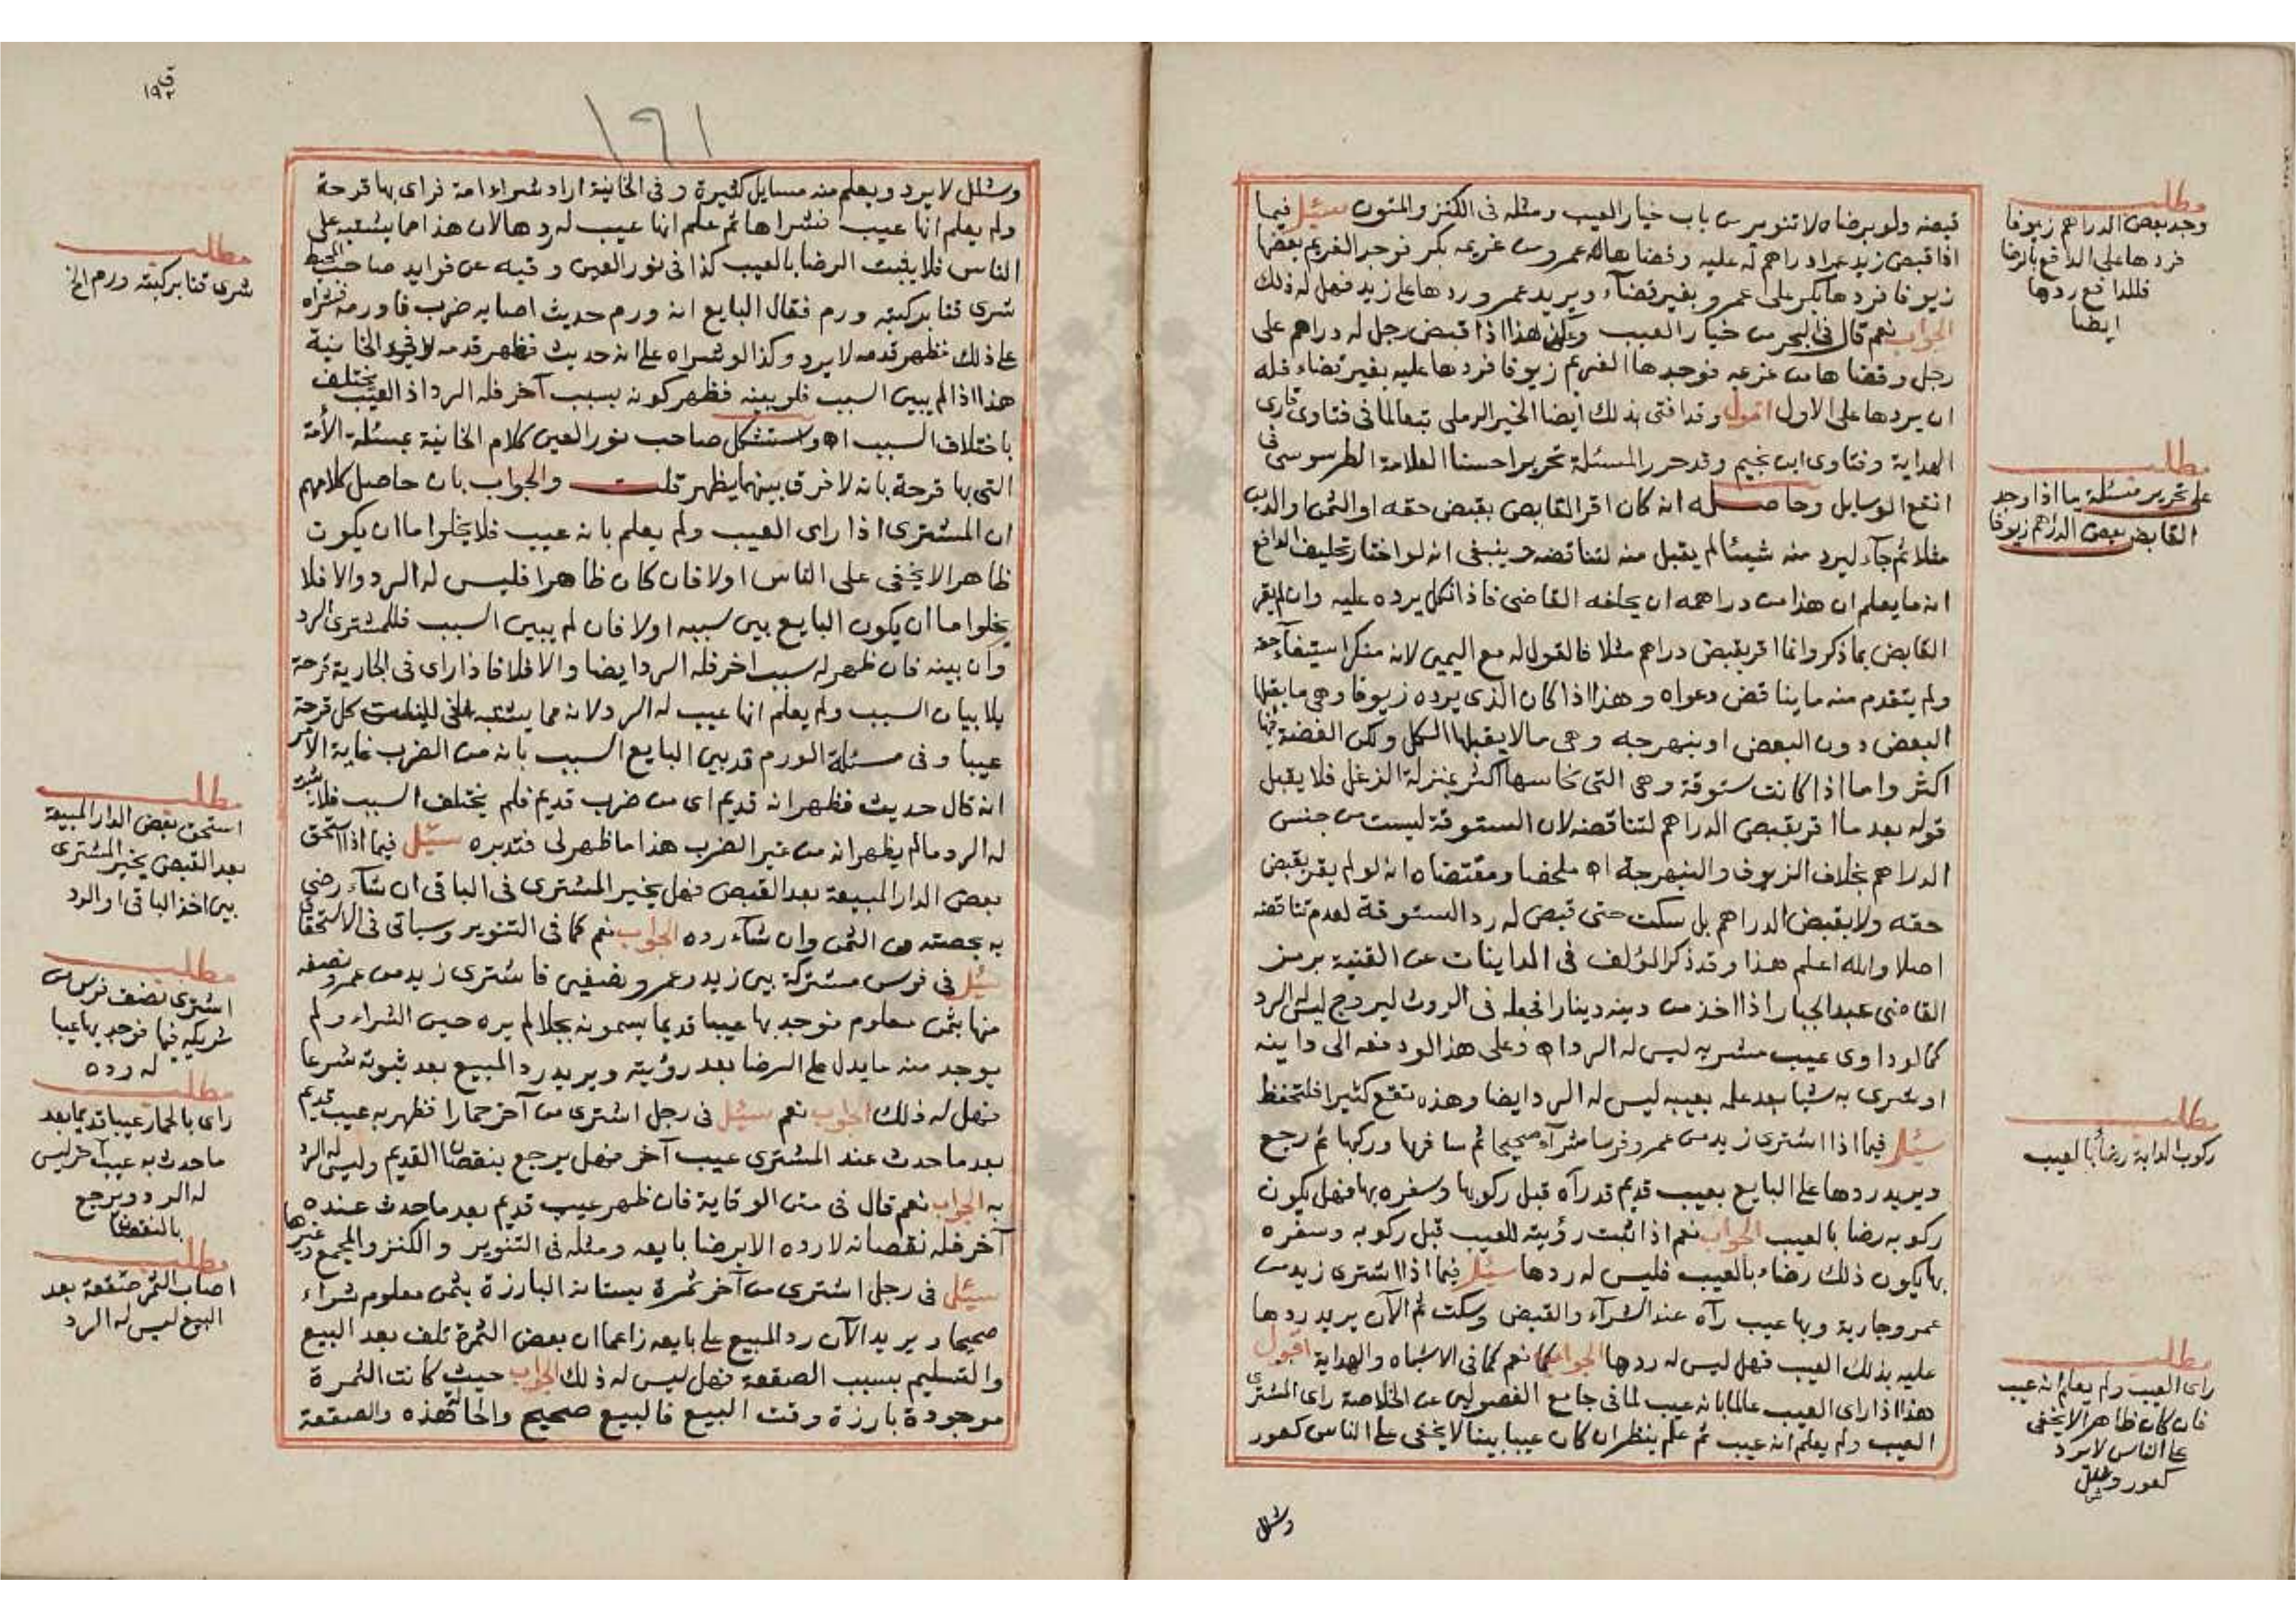 قبضه ولو برضاه لا تنوير من باب خيار العيب ومثله في الكنز والمتون سئل فيما
اذا قبض زيد دراهم له عليه وقضاها له عمرو من غريمه بكر فوجد الغريم بعضها
زيوفا فردها بكر على عمرو بغير قضاء ويريد عمرو ردها على زيد فهل له ذلك
الجواب نعم قال في البحر من خيار العيب وعلى هذا اذا قبض رجل له دراهم على
رجل وقضاها من غريمه فوجدها الغريم زيوفا فردها عليه بغير قضاء فله
ان يردها على الاول اقول وقد افتى بذلك ايضا الخير الرملي تبعا لما في فتاوى قارى
الهداية وفتاوى ابن نجيم وقد حرر المسئلة تحريرا حسنا العلامة الطرسوسي في
انفع الوسايل وحاصله انه كان اقر القابض بقبض حقه او الثمن او الدين
مثلا ثم جاء ليرد منه شيئا لم يقبل منه لتناقضه وينبغي انه لو اختار تحليف الدافع
انه ما يعلم ان هذا من دراهمه ان يحلفه القاضي فاذا نكل يرده عليه وان لم يقر
القابض بما ذكر وانما اقر بقبض دراهم مثلا فالقول له مع اليمين لانه منكر استيفاء حقه
ولم يتقدم منه ما يناقض دعواه وهذا اذا كان الذي يرده زيوفا وهي ما يقبلها
البعض دون البعض او بنهرجه وهي ما لا يقبلها الكل ولكن الفضة فيها
اكثر واما اذا كانت ستوقة وهي التي نحاسها اكثر بمنزلة الزغل فلا يقبل
قوله بعد ما اقر بقبض الدراهم لتناقضه لان الستوقة ليست من جنس
الدراهم بخلاف الزيوف والبنهرجة اه ملخصا ومقتضاه انه لو لم يقر بقبض
حقه ولا بقبض الدراهم بل سكت حتى قبض له رد الستوقة لعدم تناقضه
اصلا والله اعلم هذا وقد ذكر المؤلف في المداينات عن القنية برمز
القاضي عبد الجبار اذا اخذ من دينه دينارا فجعله في الروث ليروج ليس له الرد
كما لو داوى عيب مشريه ليس له الرد اه وعلى هذا لو دفعه الى داينه
او شرى به شيا بعد علمه بعيبه ليس له الرد ايضا وهذه تقع كثيرا فلتحفظ
سئل فيما اذا اشترى زيد من عمرو فرسا شراء صحيحا ثم سافر بها وركبها ثم رجع
ويريد ردها على البايع بعيب قديم قد رآه قبل ركوبها وسفره بها فهل يكون
ركوبه رضا بالعيب الجواب نعم اذا ثبت رؤيته للعيب قبل ركوبه وسفره
بها يكون ذلك رضاء بالعيب فليس له ردها سئل فيما اذا اشترى زيد من
عمرو جارية وبها عيب رآه عند الشرآء والقبض وسكت ثم الآن يريد ردها
عليه بذلك العيب فهل ليس له ردها الجواب نعم كما في الاشباه والهداية اقول
هذا اذا راى العيب عالما بانه عيب لما في جامع الفصولين عن الخلاصة راى المشترى
العيب ولم يعلم انه عيب ثم علم ينظر ان كان عيبا بينا لا يخفى على الناس كعور
وشلل
مطلب
وجد بعض الدراهم زيوفا
فردها على الدافع بالرضا
فللدافع ردها
ايضا
مطلب
على تحرير مسئلة ما اذا وجد
القابض بعض الدراهم زيوفا
مطلب
ركوب الدابة رضا بالعيب
مطلب
راى العيب ولم يعلم انه عيب
فان كان ظاهرا لا يخفى
على الناس لا يرد
كعور وشلل
ق
١٩٢
١٩١
وشلل لا يرد ويعلم منه مسايل كثيرة وفي الخانية اراد شراء امة فراى بها قرحة
ولم يعلم انها عيب فشراها ثم علم انها عيب له ردها لان هذا مما يشتبه على
الناس فلا يثبت الرضا بالعيب كذا في نور العين وفيه عن فرايد صاحب المحيط
شرى قنا بركبته ورم فقال البايع انه ورم حديث اصابه ضرب فاورمه فشراه
على ذلك فظهر قدمه لا يرد وكذا لو شراه على انه حديث فظهر قدمه لا يرد وفي الخانية
هذا اذا لم يبين السبب فلو بينه فظهر كونه بسبب آخر فله الرد اذ العيب يختلف
باختلاف السبب اه واستشكل صاحب نور العين كلام الخانية بمسئلة الأمة
التي بها قرحة بانه لا فرق بينهما يظهر قلت والجواب بان حاصل كلامهم
ان المشترى اذا راى العيب ولم يعلم بانه عيب فلا يخلوا ما ان يكون
ظاهرا لا يخفى على الناس اولا فان كان ظاهرا فليس له الرد والا فلا
يخلوا ما ان يكون البايع بين سببه اولا فان لم يبين السبب فللمشترى الرد
وان بينه فان ظهر له سبب اخر فله الرد ايضا والا فلا فاذا راى في الجارية قرحة
بلا بيان السبب ولم يعلم انها عيب له الرد لانه مما يشتبه على الناس كل قرحة
عيبا وفي مسئلة الورم قد بين البايع السبب بانه من الضرب غاية الامر
انه قال حديث فظهر انه قديم اي من ضرب قديم فلم يختلف السبب فلا يثبت
له الرد ما لم يظهر انه من غير الضرب هذا ما ظهر لي فتدبره سئل فيما اذا استحق
بعض الدار المبيعة بعد القبض فهل يخير المشترى في الباقي ان شاء رضي
به بحصته من الثمن وان شاء رده الجواب نعم كما في التنوير وسياتى في الاستحقاق
سئل في فرس مشتركة بين زيد وعمرو نصفين فاشترى زيد من عمرو نصفه
منها بثمن معلوم فوجد بها عيبا قديما يسمونه بجلا لم يره حين الشراء ولم
يوجد منه ما يدل على الرضا بعد رؤيته ويريد رد المبيع بعد ثبوته شرعا
فهل له ذلك الجواب نعم سئل في رجل اشترى من آخر حمارا فظهر به عيب قديم
بعد ما حدث عند المشترى عيب آخر فهل يرجع بنقصان القديم وليس له الرد
به الجواب نعم قال في متن الوقاية فان ظهر عيب قديم بعد ما حدث عنده
آخر فله نقصانه لا رده الا برضا بايعه ومثله في التنوير والكنز والمجمع وغيرها
سئل في رجل اشترى من آخر ثمرة بستانه البارزة بثمن معلوم شراء
صحيحا ويريد الآن رد المبيع على بايعه زاعما ان بعض الثمرة تلف بعد البيع
والتسليم بسبب الصقعة فهل ليس له ذلك الجواب حيث كانت الثمرة
موجودة بارزة وقت البيع فالبيع صحيح والحالة هذه والصقعة
مطلب
شرى قنا بركبته ورم الخ
مطلب
استحق بعض الدار المبيعة
بعد القبض يخير المشترى
بين اخذ الباقى او الرد
مطلب
اشترى نصف فرس من
شريكه فيها فوجد بها عيبا
له رده
مطلب
راى بالحمار عيبا قديما بعد
ما حدث به عيب آخر ليس
له الرد ويرجع
بالنقصان
مطلب
اصاب الثمر صقعة بعد
البيع ليس له الرد